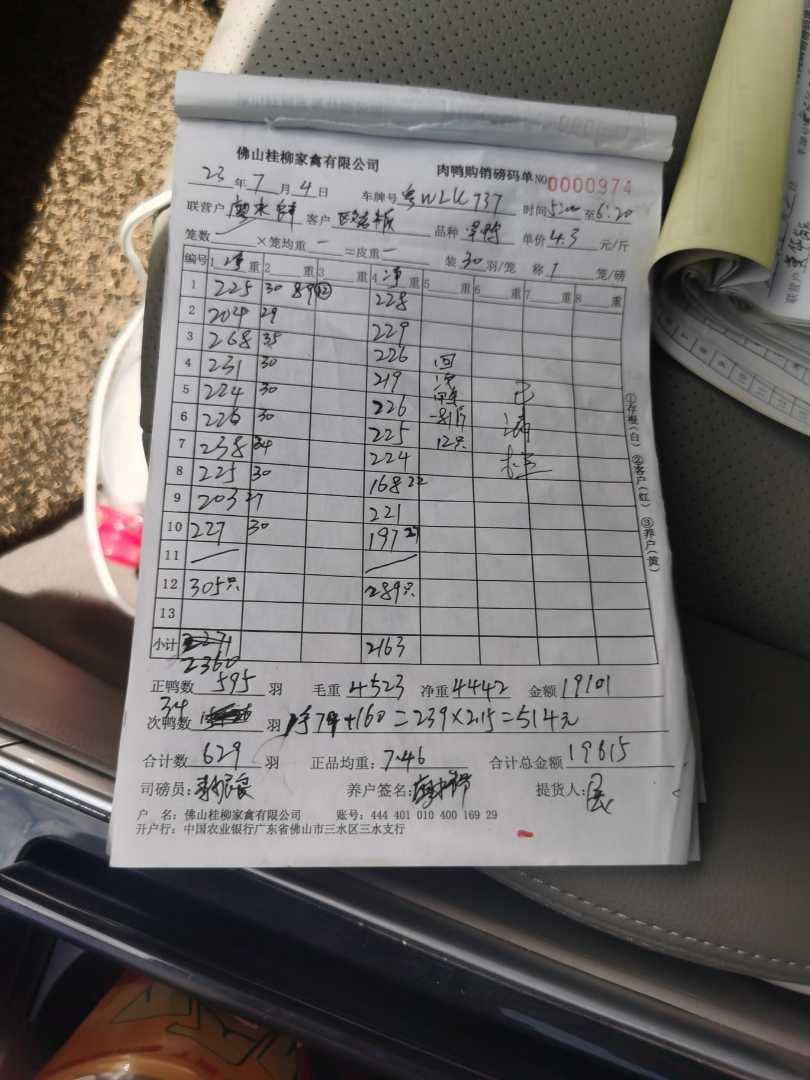 佛山桂柳家禽有限公司 肉鸭购销磅码单 NO 0000974
23 年 7 月 4 日 车牌号 粤WLK737 时间 5:00 至 6:20
联营户 客户 品种 单价 4.3 元/斤
笼数 ×笼均重 一 =皮重 一 装 30 羽/笼 称 1 笼/磅
编号 1 净 重 2 重 3 重 4 净 重 5 重 6 重 7 重 8 重
1 225 30 89 ⑫ 228
2 204 29 229
3 268 35 226 回
4 231 30 219 次
5 224 30 226 -81斤 已
6 226 30 225 12只 清
7 238 34 224
8 225 30 168 22
9 203 27 221
10 227 30 197 27
11
12 305只 289只
13
小计 2360 2163
正鸭数 595 羽 毛重 4523 净重 4442 金额 19101
次鸭数 34 羽 79+160=239×2.15=514元
合计数 629 羽 正品均重: 7.46 合计总金额 19615
司磅员: 养户签名: 提货人:
户 名: 佛山桂柳家禽有限公司 账号: 444 401 010 400 169 29
开户行: 中国农业银行广东省佛山市三水区三水支行
①存根(白) ②客户(红) ③养户(黄)